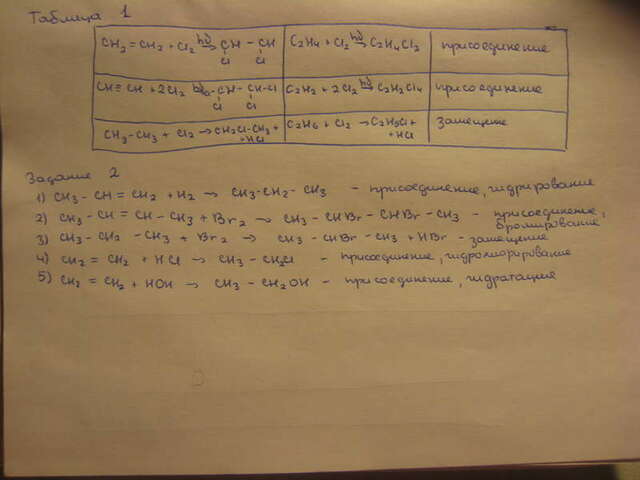 Таблица 1
CH2=CH2 + Cl2 hν→ CH – CH C2H4 + Cl2 hν→ C2H4Cl2 присоединение
Cl Cl
CH≡CH + 2Cl2 – CH – CH-Cl C2H2 + 2Cl2 hν→ C2H2Cl4 присоединение
Cl Cl
CH3-CH3 + Cl2 → CH2Cl-CH3 + C2H6 + Cl2 → C2H5Cl + замещение
HCl +HCl
Задание 2
1) CH3 – CH = CH2 + H2 → CH3-CH2 – CH3 – присоединение, гидрирование
2) CH3 – CH = CH – CH3 + Br2 → CH3 – CHBr – CHBr – CH3 – присоединение,
бромирование
3) CH3 – CH2 – CH3 + Br2 → CH3 – CHBr – CH3 + HBr – замещение
4) CH2 = CH2 + HCl → CH3 – CH2Cl – присоединение, гидрохлорирование
5) CH2 = CH2 + HOH → CH3 – CH2OH – присоединение, гидратация